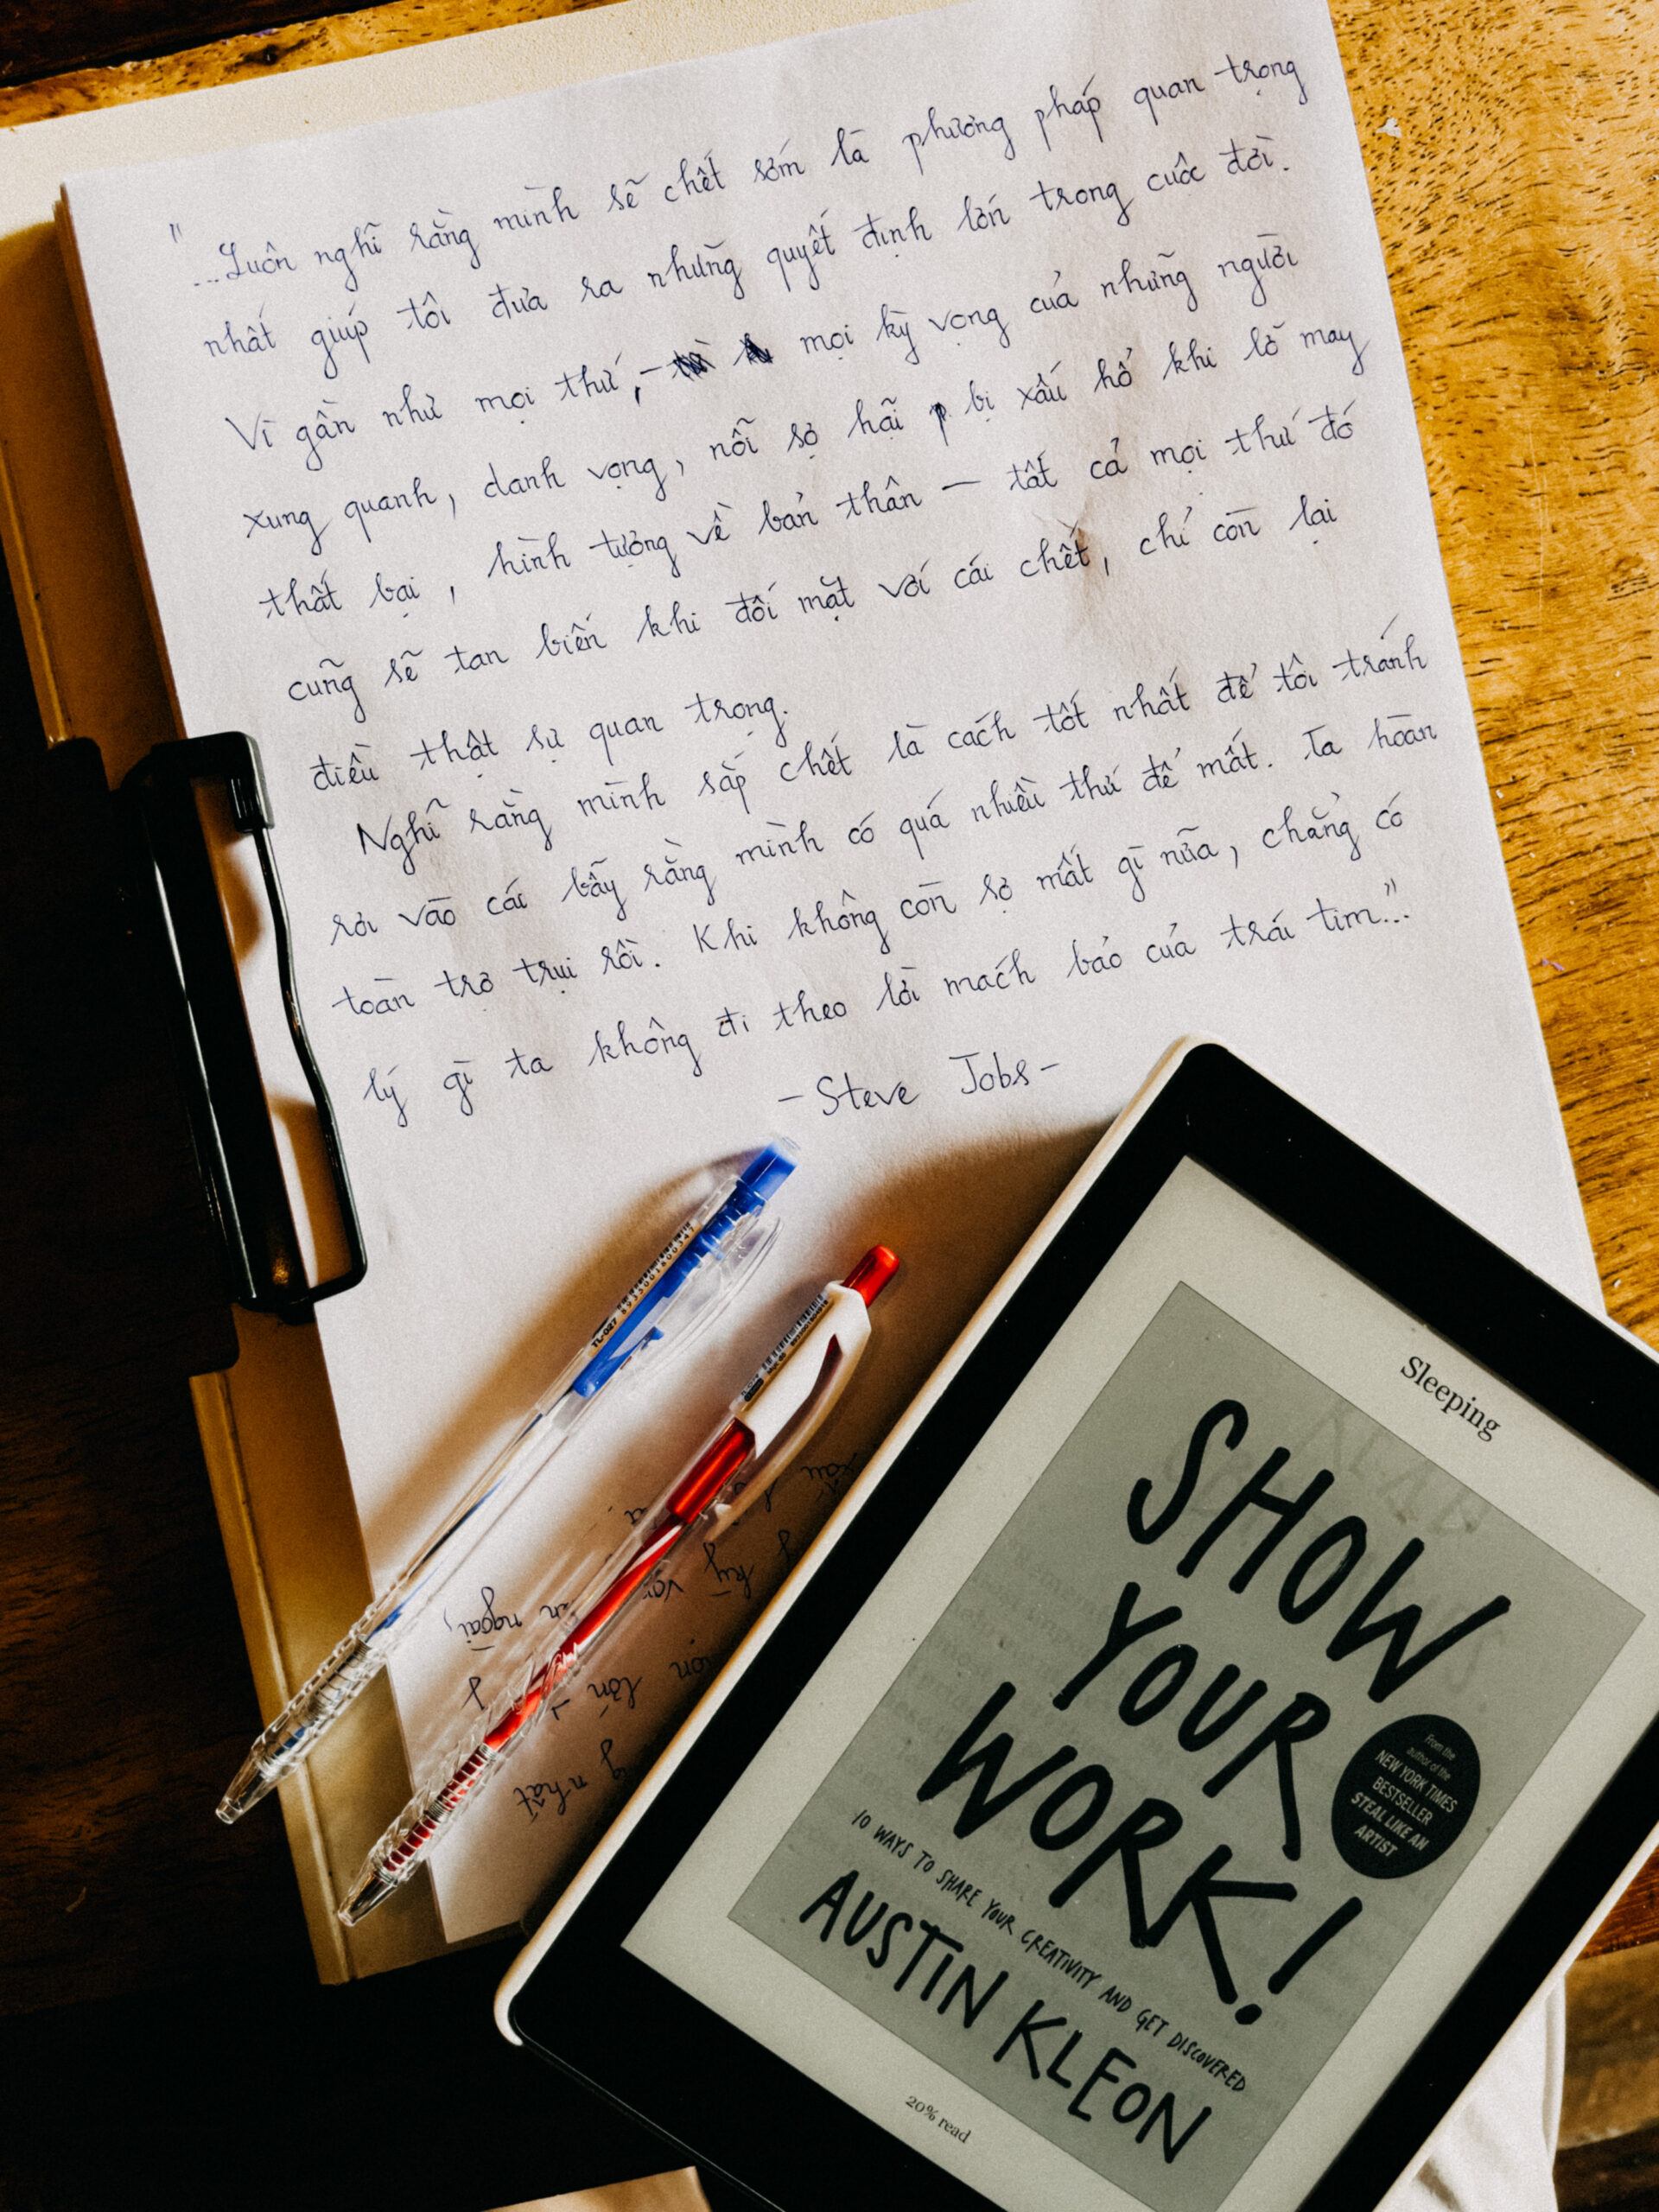 "...Luôn nghĩ rằng mình sẽ chết sớm là phương pháp quan trọng
nhất giúp tôi đưa ra những quyết định lớn trong cuộc đời.
Vì gần như mọi thứ, - mọi kỳ vọng của những người
xung quanh, danh vọng, nỗi sợ hãi bị xấu hổ khi lỡ may
thất bại, hình tượng về bản thân — tất cả mọi thứ đó
cũng sẽ tan biến khi đối mặt với cái chết, chỉ còn lại
điều thật sự quan trọng.
Nghĩ rằng mình sắp chết là cách tốt nhất để tôi tránh
rơi vào cái bẫy rằng mình có quá nhiều thứ để mất. Ta hoàn
toàn trơ trụi rồi. Khi không còn sợ mất gì nữa, chẳng có
lý gì ta không đi theo lời mách bảo của trái tim..."
- Steve Jobs -
TL-027
8935001800347
xấu
kỳ
ngoài,
lớn
nhất
Sleeping
SHOW
YOUR
WORK!
From the
author of the
NEW YORK TIMES
BESTSELLER
STEAL LIKE AN
ARTIST
10 WAYS TO SHARE YOUR CREATIVITY AND GET DISCOVERED
AUSTIN KLEON
20% read